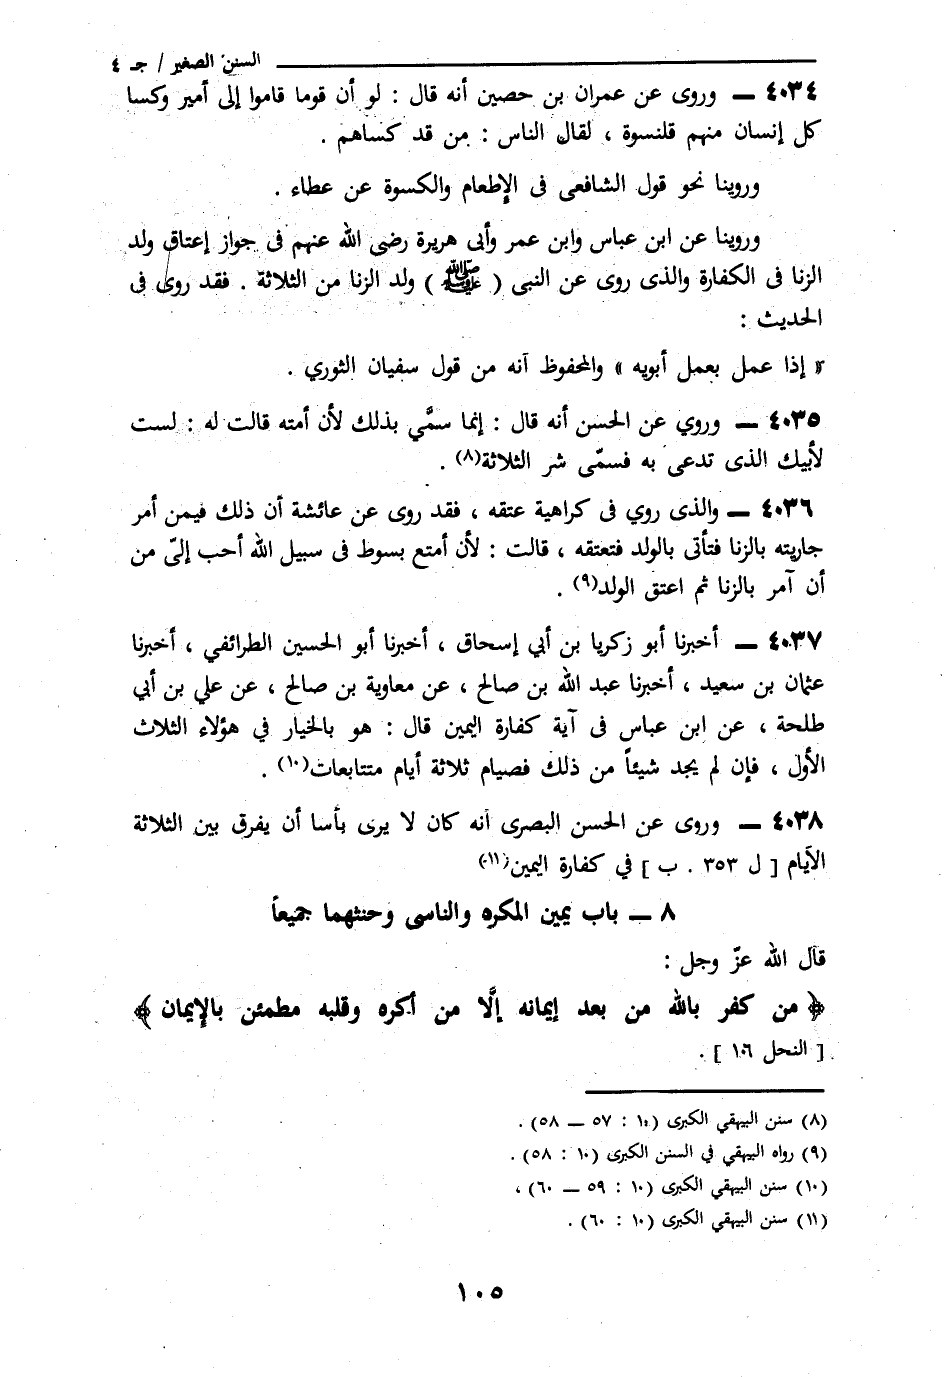 السنن الصغير / جـ ٤
٤٠٣٤ ــ وروى عن عمران بن حصين أنه قال : لو أن قوما قاموا إلى أمير وكسا
كل إنسان منهم قلنسوة ، لقال الناس : من قد كساهم .
وروينا نحو قول الشافعى فى الإطعام والكسوة عن عطاء .
وروينا عن ابن عباس وابن عمر وأبى هريرة رضى الله عنهم فى جواز إعتاق ولد
الزنا فى الكفارة والذى روى عن النبى ( ﷺ ) ولد الزنا من الثلاثة . فقد روى فى
الحديث :
« إذا عمل بعمل أبويه » والمحفوظ أنه من قول سفيان الثوري .
٤٠٣٥ ــ وروي عن الحسن أنه قال : إنما سمَّي بذلك لأن أمته قالت له : لست
لأبيك الذى تدعى به فسمّى شر الثلاثة(٨) .
٤٠٣٦ ــ والذى روي فى كراهية عتقه ، فقد روى عن عائشة أن ذلك فيمن أمر
جاريته بالزنا فتأتى بالولد فتعتقه ، قالت : لأن أمتع بسوط فى سبيل الله أحب إلىّ من
أن آمر بالزنا ثم اعتق الولد(٩) .
٤٠٣٧ ــ أخبرنا أبو زكريا بن أبي إسحاق ، أخبرنا أبو الحسين الطرائفي ، أخبرنا
عثمان بن سعيد ، أخبرنا عبد الله بن صالح ، عن معاوية بن صالح ، عن علي بن أبي
طلحة ، عن ابن عباس فى آية كفارة اليمين قال : هو بالخيار في هؤلاء الثلاث
الأول ، فإن لم يجد شيئاً من ذلك فصيام ثلاثة أيام متتابعات(١٠) .
٤٠٣٨ ــ وروى عن الحسن البصرى أنه كان لا يرى بأسا أن يفرق بين الثلاثة
الأيام [ ل ٣٥٣ . ب ] في كفارة اليمين(١١)
٨ ــ باب يمين المكره والناسى وحنثهما جميعاً
قال الله عزّ وجل :
﴿ من كفر بالله من بعد إيمانه إلَّا من أكره وقلبه مطمئن بالإيمان ﴾
[ النحل ١٠٦ ] .
(٨) سنن البيهقي الكبرى (١٠ : ٥٧ ــ ٥٨) .
(٩) رواه البيهقي في السنن الكبرى (١٠ : ٥٨) .
(١٠) سنن البيهقي الكبرى (١٠ : ٥٩ ــ ٦٠) ،
(١١) سنن البيهقي الكبرى (١٠ : ٦٠) .
١٠٥